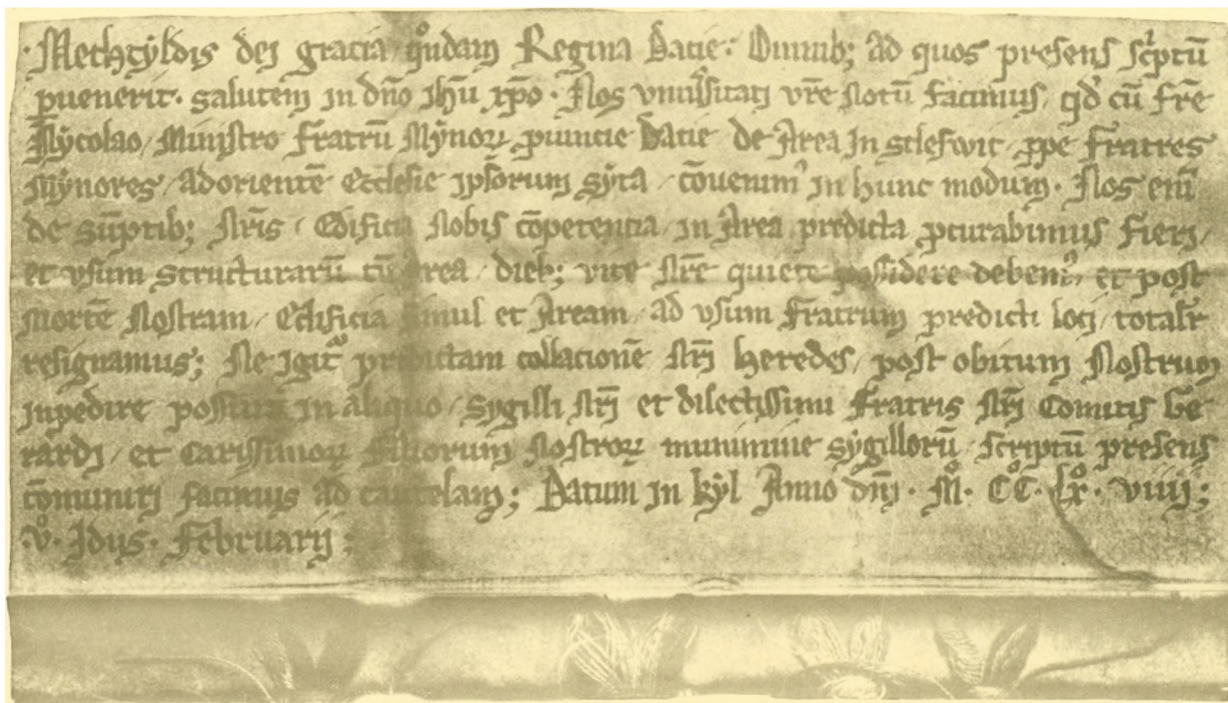 Mechtyldis dej gracia qͦndam Regina Dacie. Omnib; ad quos presens sc͛ptū
puenerit. salutem in dn̄o ih̄u xp̄o. Nos vniu͛sitatj vr̄e Notū facimus, qd̕ cū fr̄e
Nycolao, Ministro fratrū Mynoꝝ puincie Dacie de Area In slefwic, ꝓpe fratres
Mynores, ad orientē Ecclesie ipsorum syta, cōuenimꝰ in hunc modum. Nos enī
de sūptib; Nr̄is, Edificia Nobis cōpetencia, in Area predicta ꝓcurabimus fierj,
et vsum structurarū cū Area, dieb; vite Nr̄e quiete possidere debemꝰ, et post
Mortē Nostram, Edificia simul et Aream, ad vsum fratrum predicti locj, totalr̄
resignamus; Ne igitᷣ predictam collacionē Nr̄j heredes, post obitum Nostrum
inpedire possint in aliquo, sygilli Nr̄j et dilectissimi fratris Nr̄j Comitis Ge
rardj, et carissimoꝝ filiorum Nostroꝝ munimine sygillorū, scriptū presens
cōmunirj facimus ad cautelam; Datum in kyl Anno dn̄j. Mͦ. CCͦ. Lxͦ. viiij;
vͦ. Idus. Februarij;